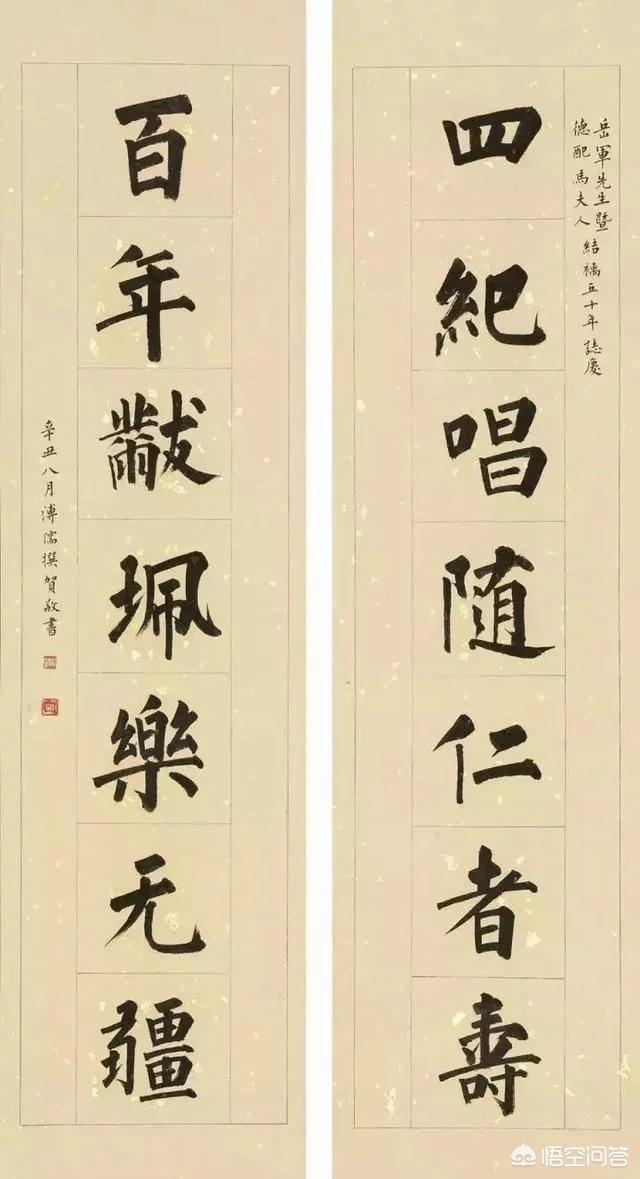 岳軍先生暨
德配馬夫人 結褵五十年誌慶
四紀唱随仁者壽
百年黻珮樂无疆
辛丑八月溥儒撰賀敬書
悟空问答